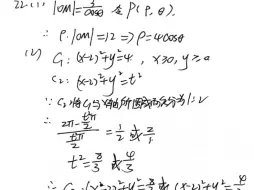 22.(1) |OM|=3/cosθ 令P(ρ,θ).
∴ ρ·|OM|=12 ⇒ ρ=4cosθ
(2) C₁: (x-2)²+y²=4 , x≥0, y≥0
C₂: (x-2)²+y²=t²
∵ C₂将C₁与 所围 分为1:2
∴ (2π-t²π/2)/(t²π/2)=1/2 或 2/1
t²=8/3 或 4/3
∴ C₂: (x-2)²+y²=8/3 或 (x-2)²+y²=4/